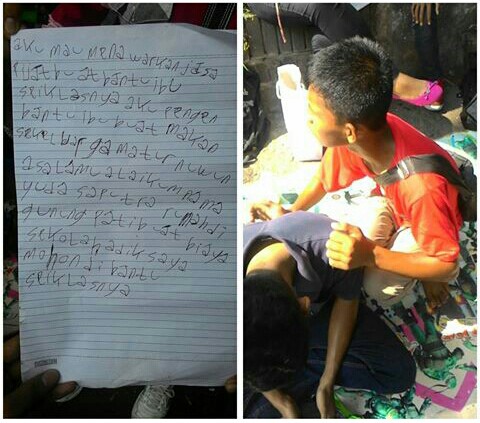 aku mau menawarkan jasa
bantu ibu
seiklasnya aku pengen
bantu ibu buat makan
sekeluarga matur nuwun
asalamualaikum nama
yuda saputra rumah di
gunung pati buat biaya
sekolah adik saya
mohon di bantu
seiklasnya